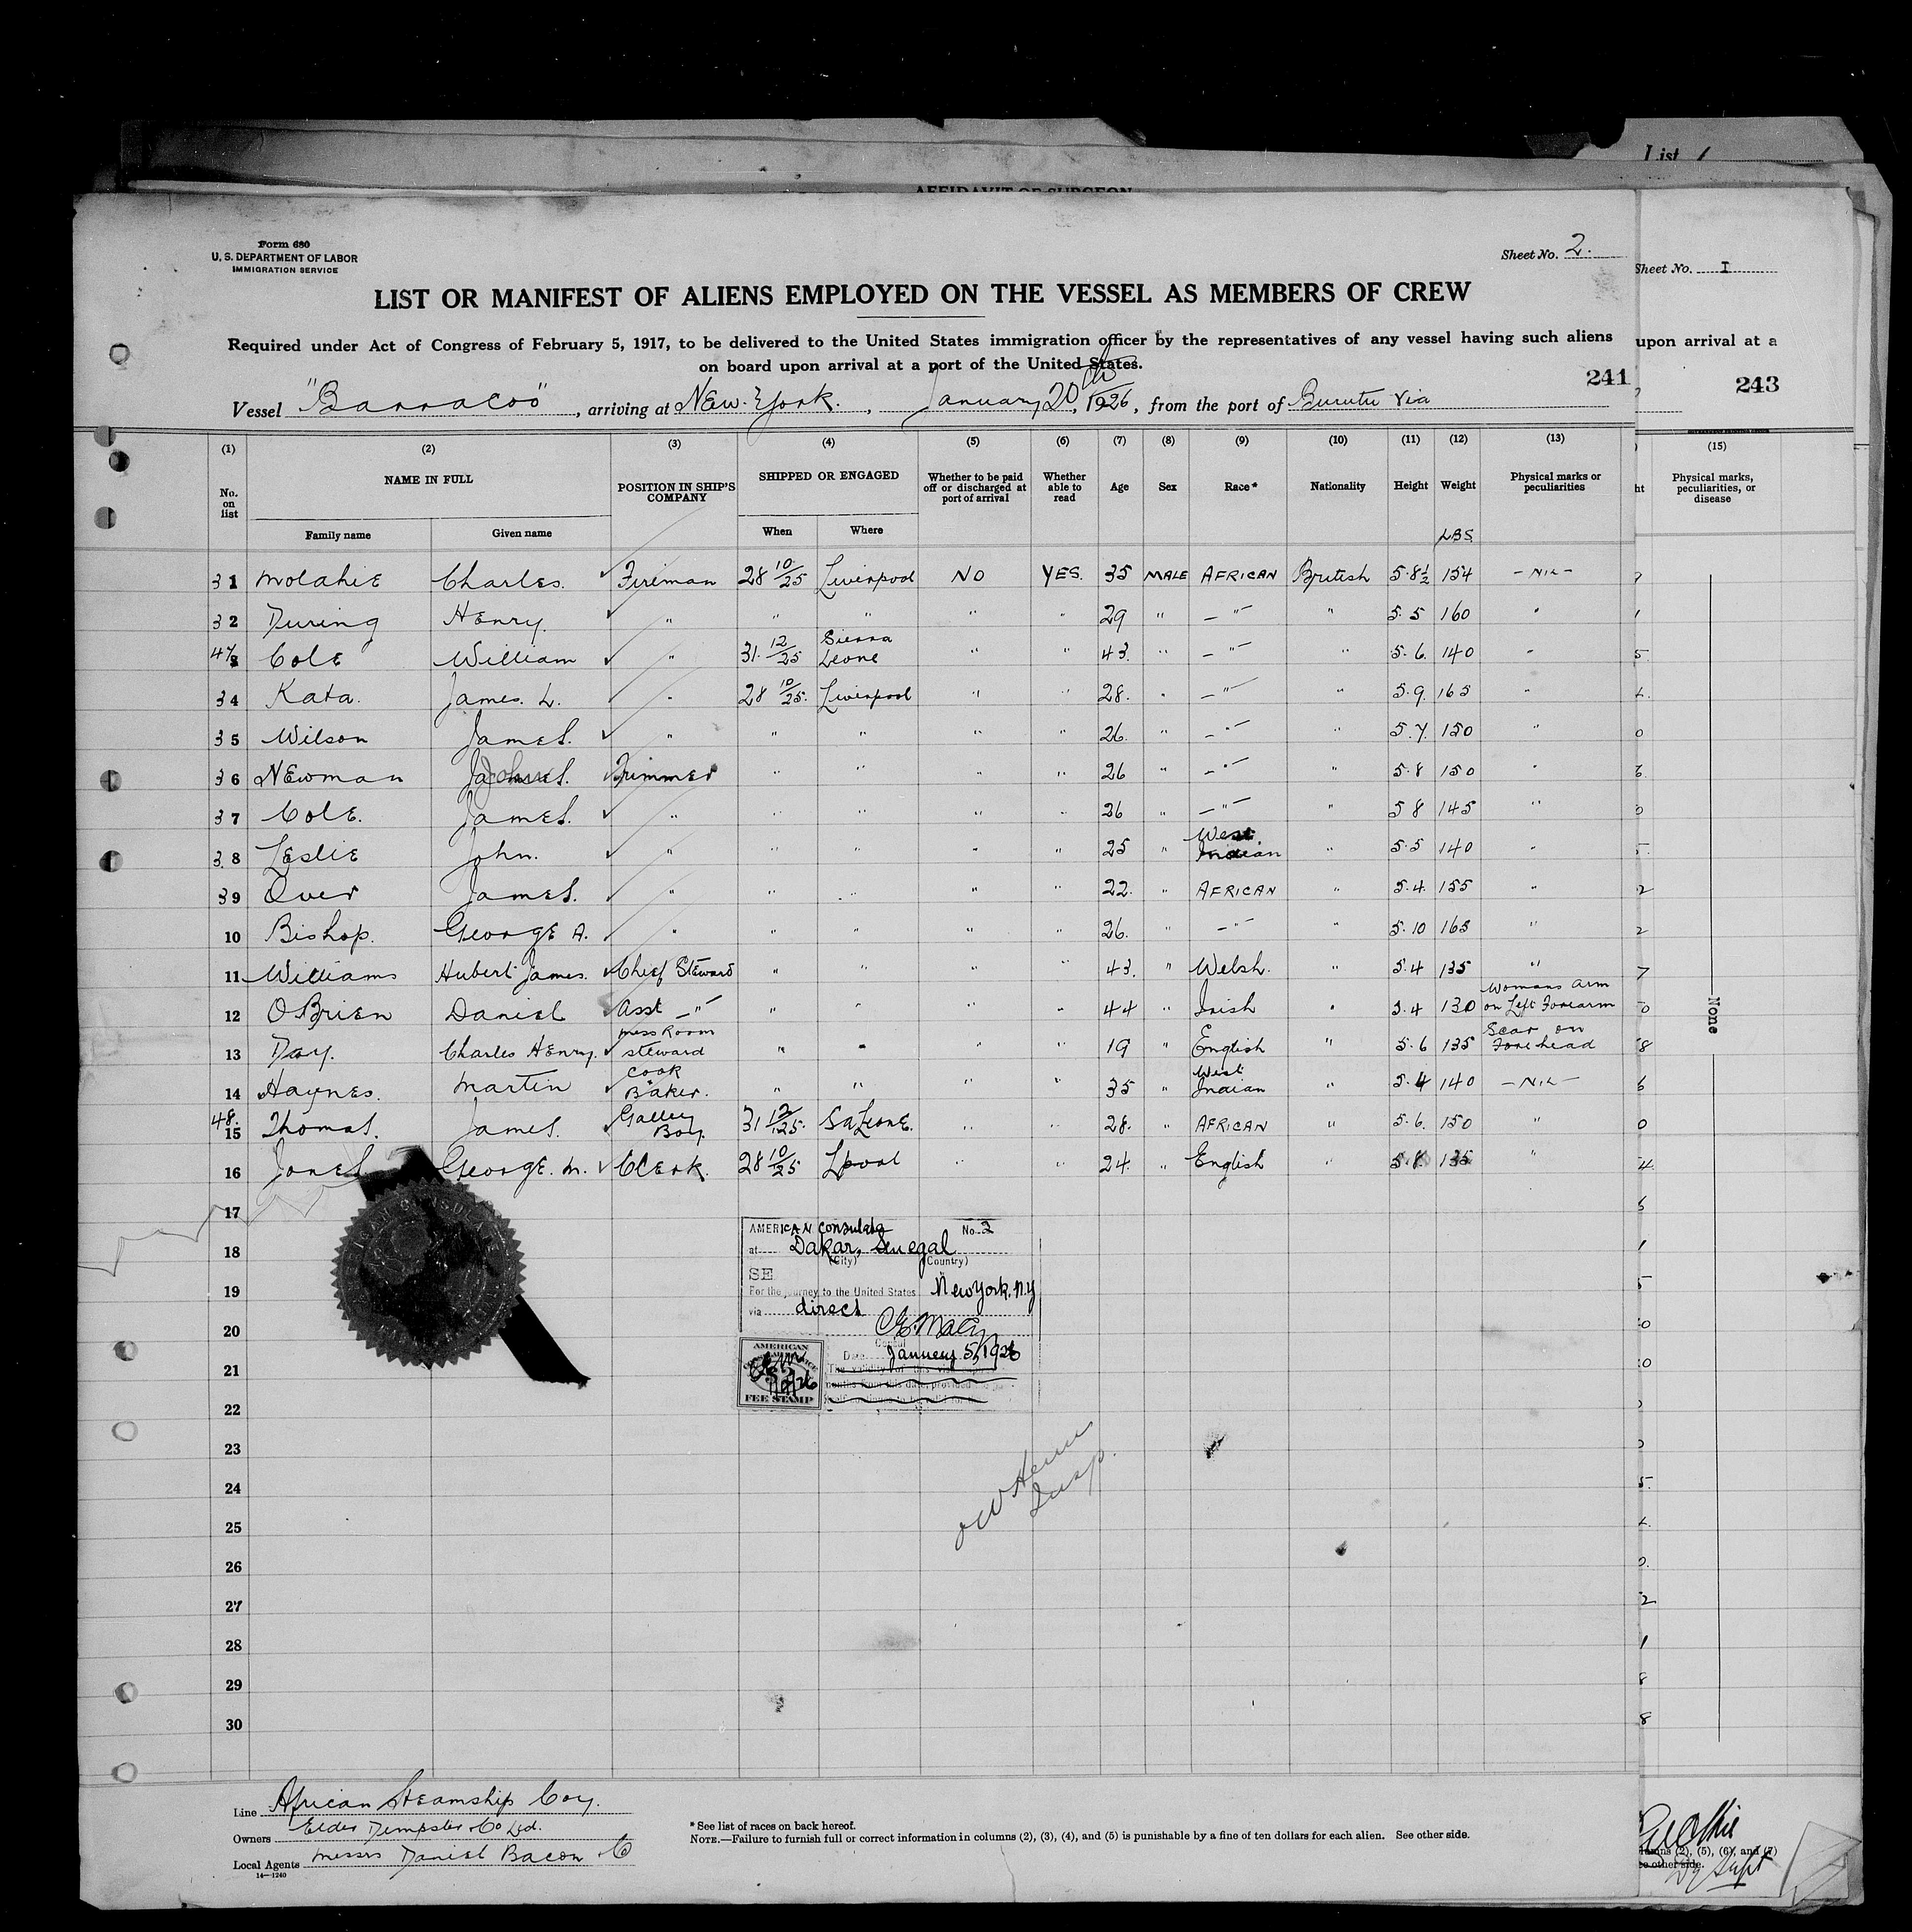 List 1
AFFIDAVIT OF SURGEON
Form 680
U. S. DEPARTMENT OF LABOR
IMMIGRATION SERVICE
Sheet No. 2.
Sheet No. I
LIST OR MANIFEST OF ALIENS EMPLOYED ON THE VESSEL AS MEMBERS OF CREW
Required under Act of Congress of February 5, 1917, to be delivered to the United States immigration officer by the representatives of any vessel having such aliens
on board upon arrival at a port of the United States.
upon arrival at a
241
243
Vessel "Barracoo", arriving at New-York., January 20th, 1926, from the port of Burutu via
(1) (2) (3) (4) (5) (6) (7) (8) (9) (10) (11) (12) (13) (15)
No. on list NAME IN FULL POSITION IN SHIP'S COMPANY SHIPPED OR ENGAGED Whether to be paid off or discharged at port of arrival Whether able to read Age Sex Race* Nationality Height Weight Physical marks or peculiarities
Physical marks, peculiarities, or disease
Family name Given name When Where LBS.
31 Molahie Charles. Fireman 28 10/25 Liverpool NO YES. 35 MALE AFRICAN British 5·8½ 154 -Nil-
32 During Henry. " " " " " 29 " -"- " 5·5 160 "
47 3 Cole William " 31. 12/25 Sierra Leone " " 43. " -"- " 5·6. 140 "
34 Kata. James. L. " 28 10/25. Liverpool " " 28. " -"- " 5·9. 165 "
35 Wilson James. " " " " " 26. " -"- " 5·7. 150 "
36 Newman John Trimmer " " " " 26 " -"- " 5·8 150 "
37 Cole. James. " " " " " 26 " -"- " 5 8 145 "
3 8 Leslie John. " " " " " 25 " West Indian " 5·5 140 "
39 Over James. " " " " " 22. " AFRICAN " 5·4. 155 "
10 Bishop. George A. " " " " " 26. " -"- " 5·10 165 "
11 Williams Hubert James. Chief Steward " " " " 43. " Welsh. " 5·4 135 "
12 O'Brien Daniel Asst -"- " " " " 44 " Irish " 5·4 130 Womans arm on Left Forearm
13 Day. Charles Henry. Mess Room Steward " " " " 19 " English " 5·6 135 Scar on Forehead
14 Haynes. Martin Cook & Baker. " " " " 35 " West Indian " 5·4 140 -Nil-
48. 15 Thomas. James. Galley Boy. 31 12/25. Sa Leone. " " 28. " AFRICAN " 5·6. 150 "
16 Jones George. M. Clerk. 28 10/25 Lpool " " 24. " English " 5·8 135 "
17
18
19
20
21
22
23
24
25
26
27
28
29
30
None
AMERICAN Consulate No. 2
at Dakar, Senegal
(City) (Country)
SE
For the journey to the United States New York. N.Y
via direct
Consul
Date January 5, 1926
AMERICAN
FEE STAMP
Insp.
Line African Steamship Coy.
Owners Elder Dempster & Co Ltd.
Local Agents Messrs Daniel Bacon & Co
14—1240
* See list of races on back hereof.
NOTE.—Failure to furnish full or correct information in columns (2), (3), (4), and (5) is punishable by a fine of ten dollars for each alien. See other side.
(2), (5), (6), and (7)
other side.